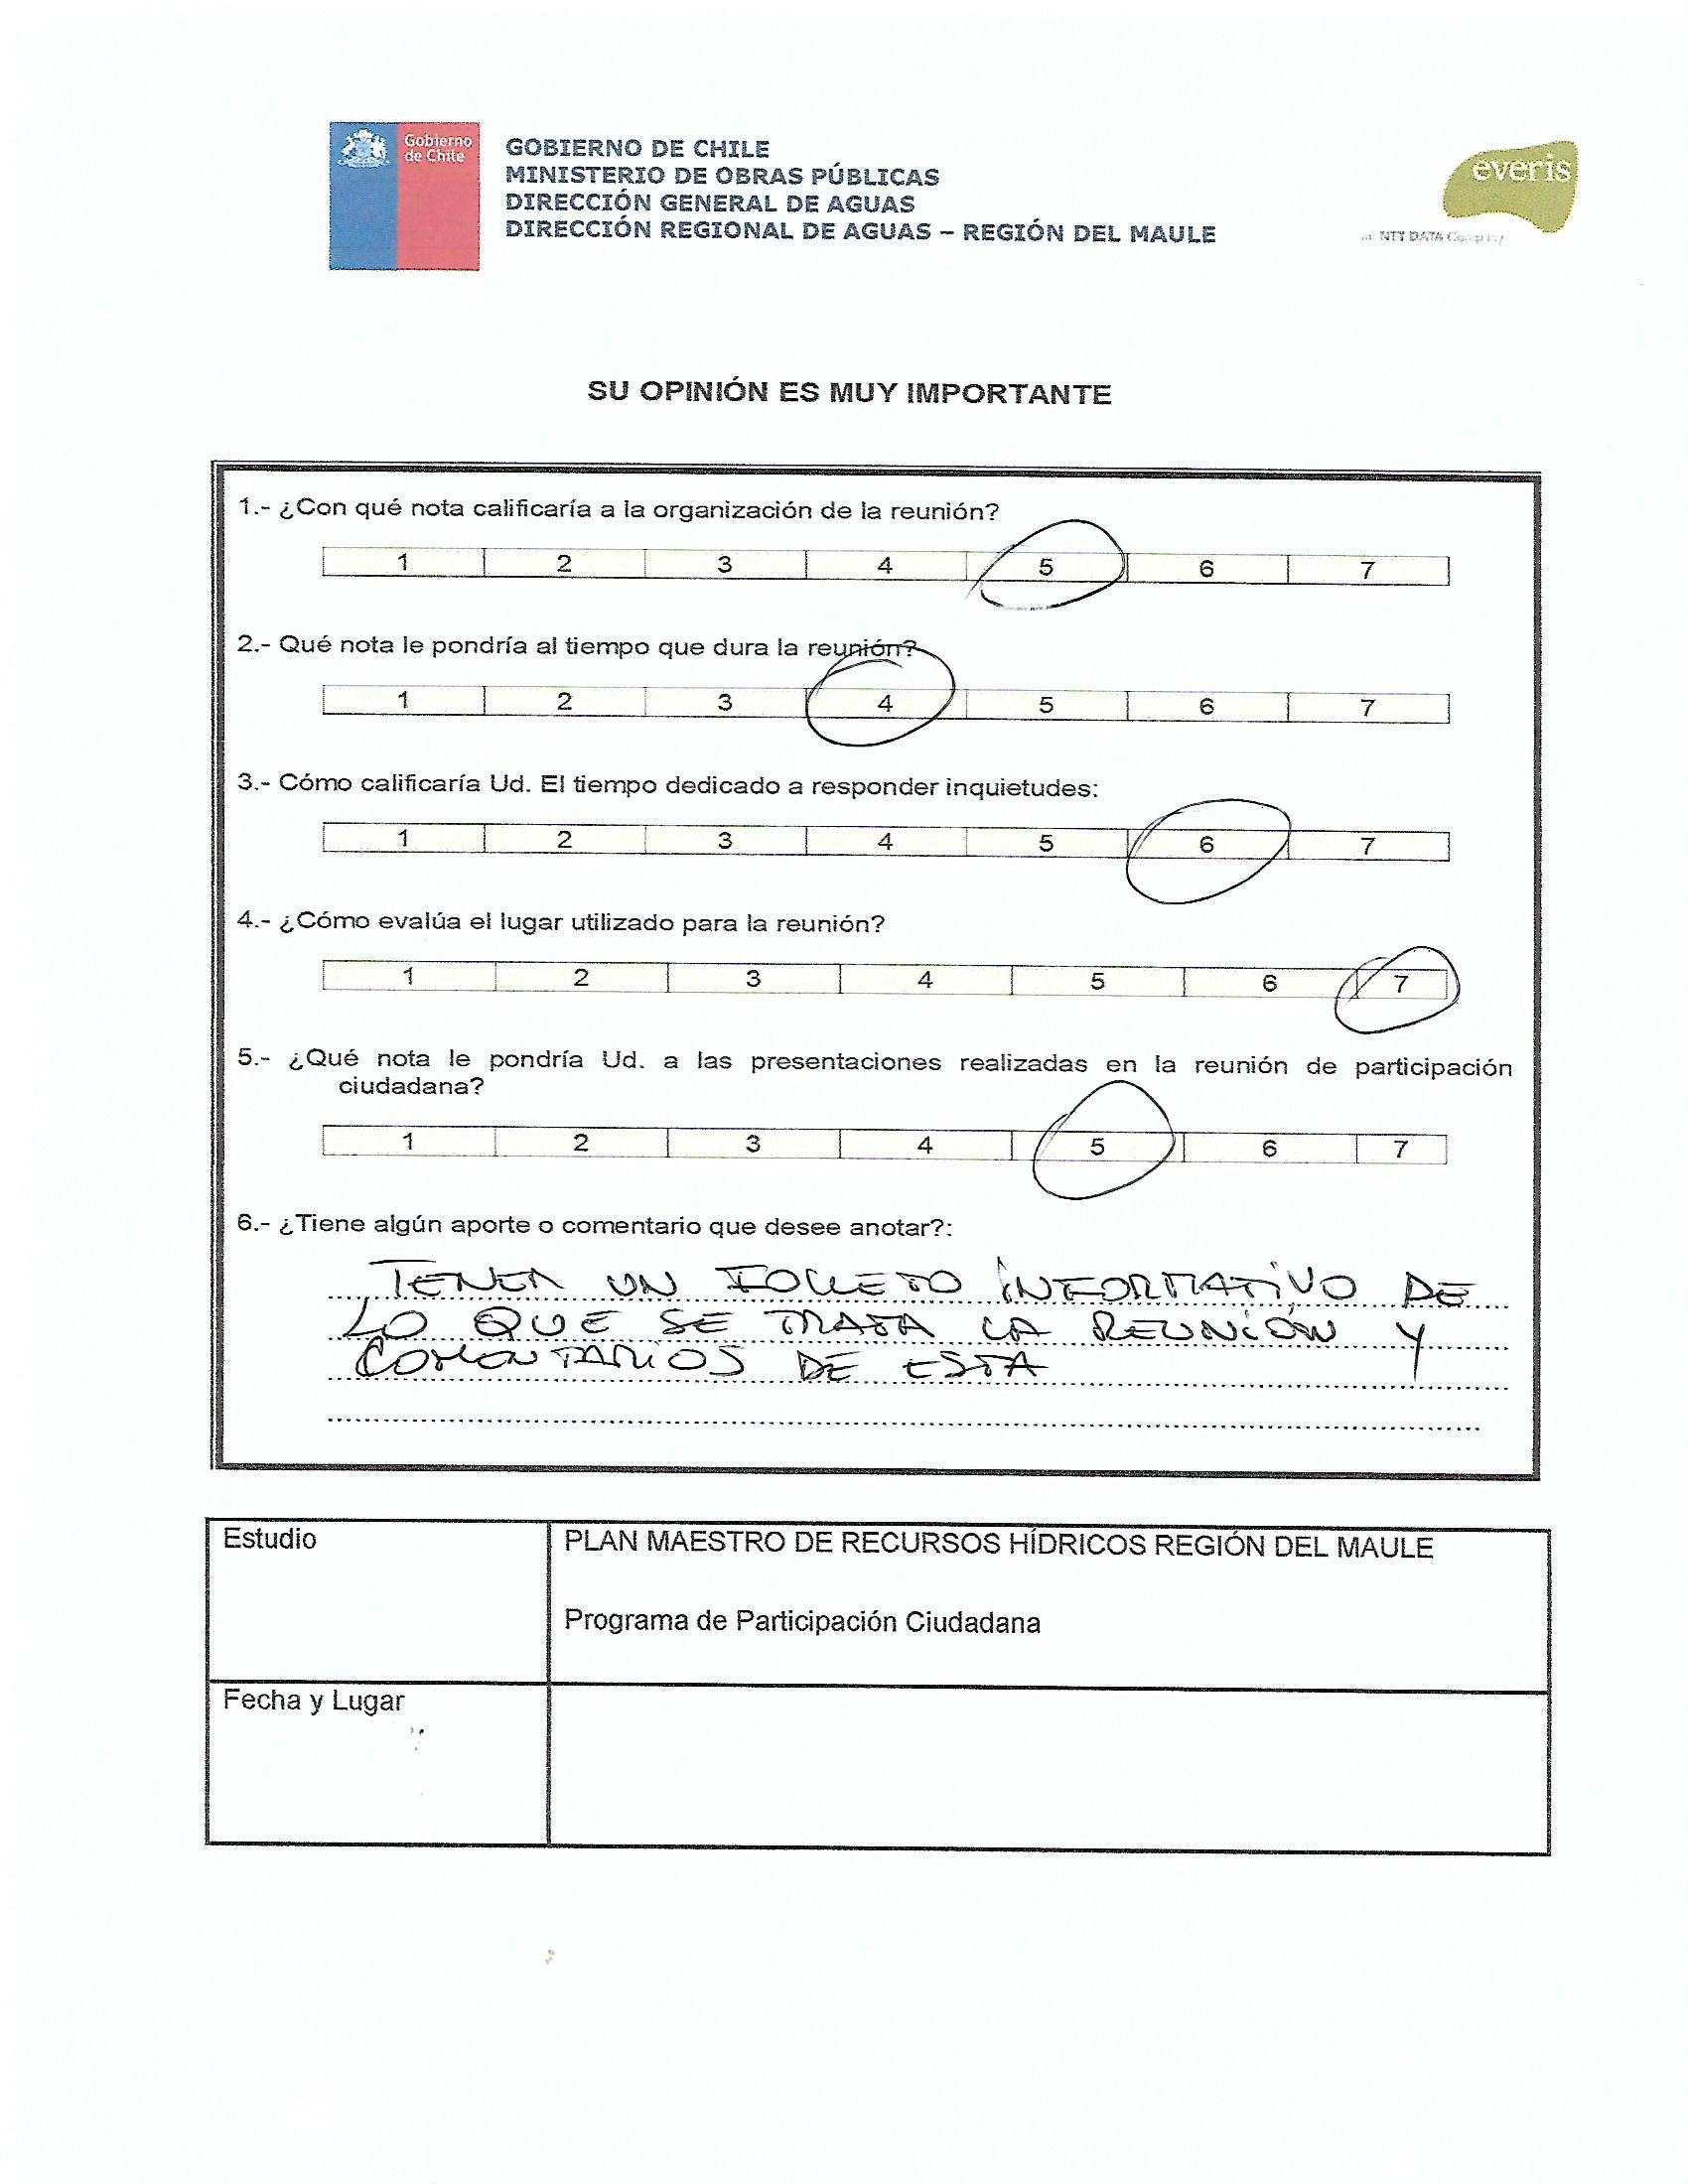 Gobierno
de Chile
GOBIERNO DE CHILE
MINISTERIO DE OBRAS PÚBLICAS
DIRECCIÓN GENERAL DE AGUAS
DIRECCIÓN REGIONAL DE AGUAS – REGIÓN DEL MAULE
everis
an NTT DATA Company
SU OPINIÓN ES MUY IMPORTANTE
1.- ¿Con qué nota calificaría a la organización de la reunión?
1 2 3 4 5 6 7
2.- Qué nota le pondría al tiempo que dura la reunión?
1 2 3 4 5 6 7
3.- Cómo calificaría Ud. El tiempo dedicado a responder inquietudes:
1 2 3 4 5 6 7
4.- ¿Cómo evalúa el lugar utilizado para la reunión?
1 2 3 4 5 6 7
5.- ¿Qué nota le pondría Ud. a las presentaciones realizadas en la reunión de participación
ciudadana?
1 2 3 4 5 6 7
6.- ¿Tiene algún aporte o comentario que desee anotar?:
TENER UN FOLLETO INFORMATIVO DE
LO QUE SE TRATA LA REUNIÓN Y
COMENTARIOS DE ESTA
Estudio
PLAN MAESTRO DE RECURSOS HÍDRICOS REGIÓN DEL MAULE
Programa de Participación Ciudadana
Fecha y Lugar